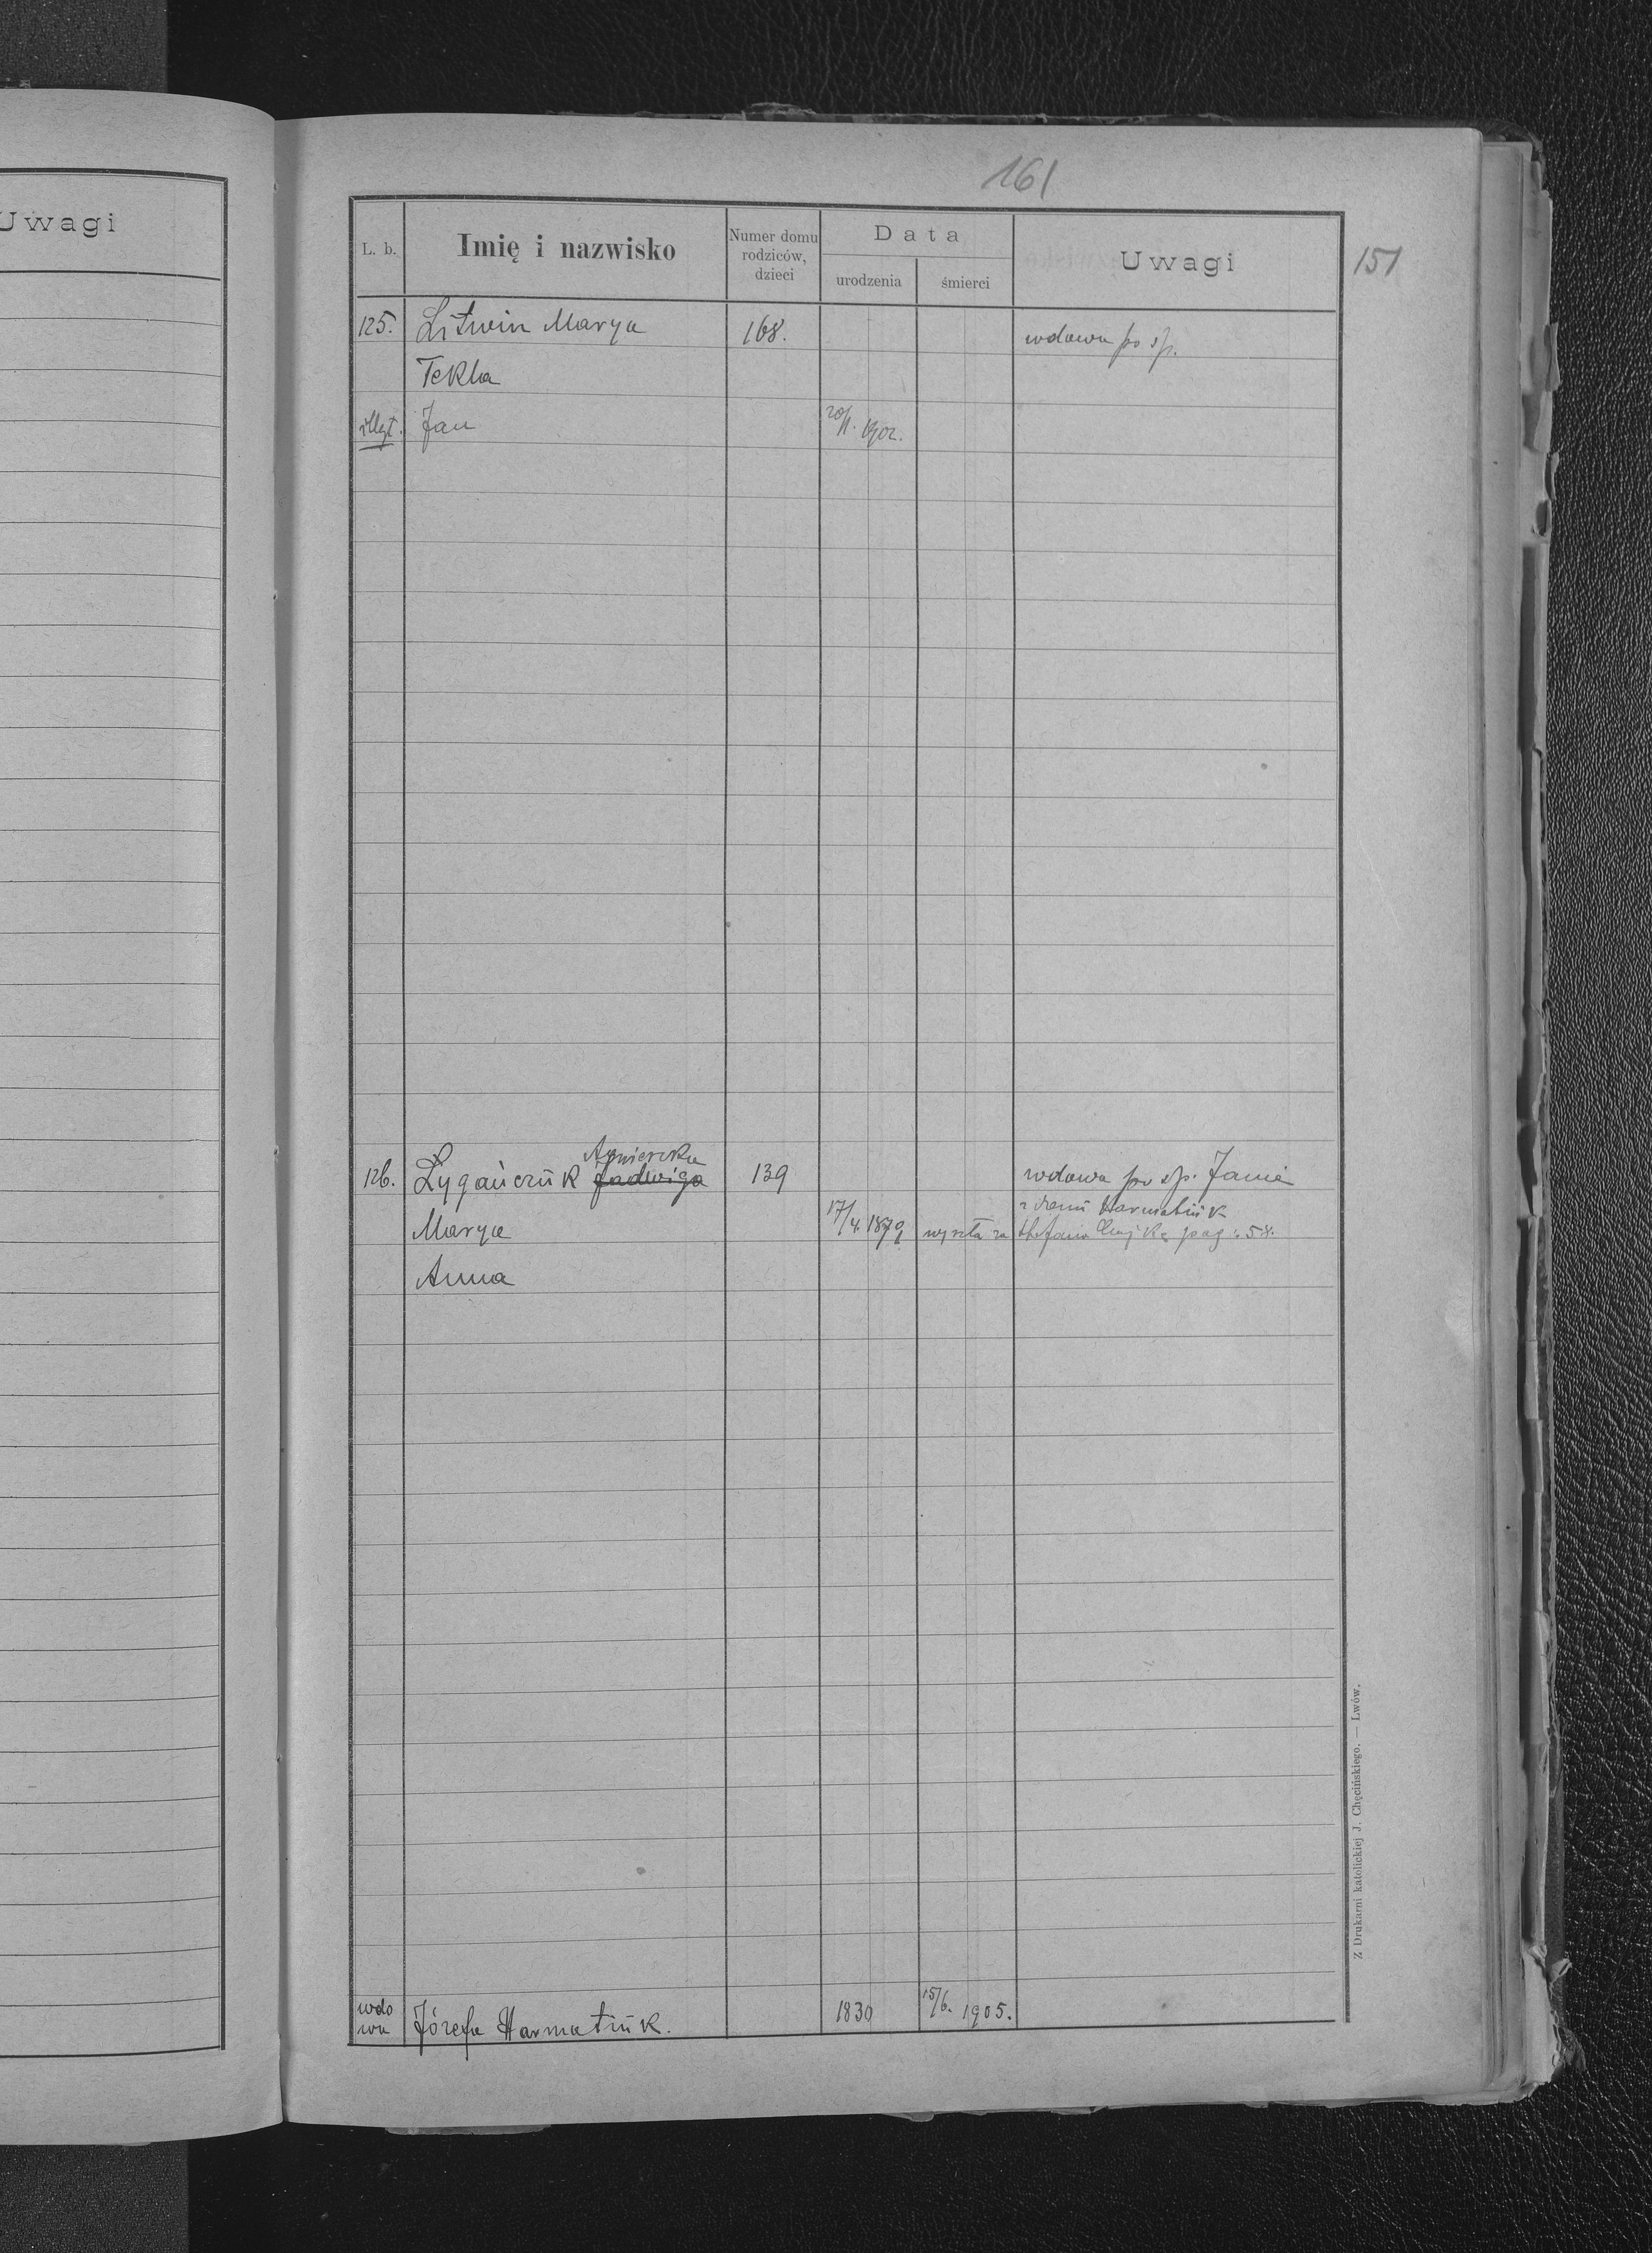 161
Uwagi
L. b.
Imię i nazwisko
Numer domu
rodziców,
dzieci
Data
urodzenia
śmierci
Uwagi
151
125. Litwin Marya 168. wdowa po śp.
Tekla
illegt. Jan 20/1. 1902.
Agnieszka
126. Lyganczuk Jadwiga 139 wdowa po śp. Janie
z domu Harmatiuk
Marya 17/4. 1879 wyszła za Stefana pag: 58.
Anna
wdo
wa Józefa Harmatiuk. 1830 15/6. 1905.
Z Drukarni katolickiej J. Chęcińskiego. — Lwów.